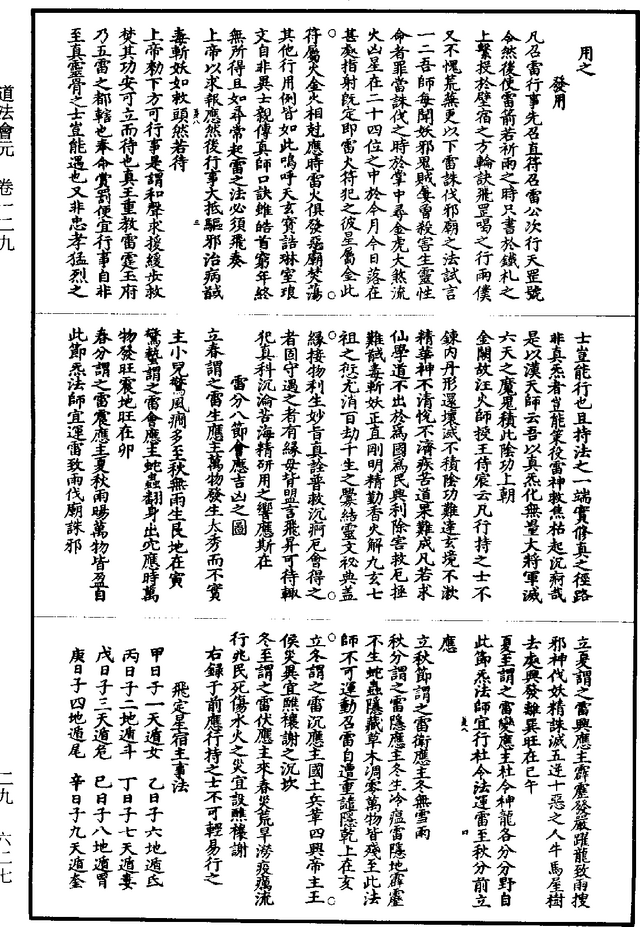 道法會元 卷一二九
二九 六二七
用之
發用
凡召雷行事先召直符召雷公次行天罡號
令然後使雷箭若祈雨之時只書於鐵札之
上繫投於壁宿之方輪訣飛罡喝之行雨僕
又不愧荒蕪更以下雷誅伐邪廟之法試言
一二吾師每聞妖邪鬼賊屢曾殺害生靈性
命者罪當誅伐之時於掌中尋金虎大煞流
火凶星在二十四位之中於今月今日落在
甚處指射既定即雷火符犯之彼星屬金此
符屬火金火相尅應時雷火俱發惡廟焚蕩
其他行用例皆如此嗚呼天玄寶誥琳室琅
文自非異士親傳真師口訣雖皓首窮年終
無所得且如尋常起雷之法必須飛奏
上帝以求報應然後行事大抵驅邪治病馘
毒斬妖如救頭然若待
上帝勑下方可行事是謂和聲求援緩步救
焚其功安可立而待也真王重教雷霆玉府
乃五雷之都轄也奉命賞罰便宜行事自非
至真靈骨之士豈能遇也又非忠孝猛烈之
士豈能行也且持法之一端實修真之徑路
非真炁者豈能業役雷神救焦枯起沉痾哉
是以漢天師云吾以真炁化無量大將軍滅
六天之魔鬼積此陰功上朝
金闕故汪火師授王侍宸云凡行持之士不
鍊內丹形還壞滅不積陰功難達玄境不漱
精華神不清悅不濟疾苦道果難成凡若求
仙學道不出於為國為民興利除害救厄拯
難馘毒斬妖正直剛明精勤香火解九玄七
祖之愆尤消百劫千生之釁結靈文祕典蓋
緣接物利生妙旨真詮普救沉痾厄會得之
者固守遇之者有緣毋背盟言飛昇可待輒
犯真科沉淪苦海精研用之響應斯在
雷分八節會應吉凶之圖
立春謂之雷生應主萬物發生太秀而不實
主小兒驚風癇多至秋無雨生艮地在寅
驚蟄謂之雷會應主蛇蟲翻身出穴應時萬
物發旺震地旺在卯
春分謂之雷震應主夏秋雨暘萬物皆盈自
此節炁法師宜運雷致雨伐廟誅邪
立夏謂之雷興應主霹靂發嚴躍龍致雨搜
邪神伐妖精誅滅五逆十惡之人牛馬屋樹
去處興發離巽旺在巳午
夏至謂之雷變應主社令神龍各分分野自
此節炁法師宜行社令法運雷至秋分前立
應
立秋節謂之雷衝應主冬無雪雨
秋分謂之雷隱應主冬生冷瘟雷隱地霹靂
不生蛇蟲隱藏草木凋零萬物皆殘至此法
師不可運動召雷自遭重譴隱乾上在亥
立冬謂之雷沉應主國土兵革四興帝主王
侯災異宜醮禳謝之沉坎
冬至謂之雷伏應主來春災荒旱澇疫癘流
行兆民死傷水火之災宜設醮禳謝
右錄于前應行持之士不可輕易行之
飛定星宿主事法
甲日子一天遁女 乙日子六地遁氐
丙日子二地遁斗 丁日子七天遁婁
戊日子三天遁危 己日子八地遁胃
庚日子四地遁尾 辛日子九天遁奎